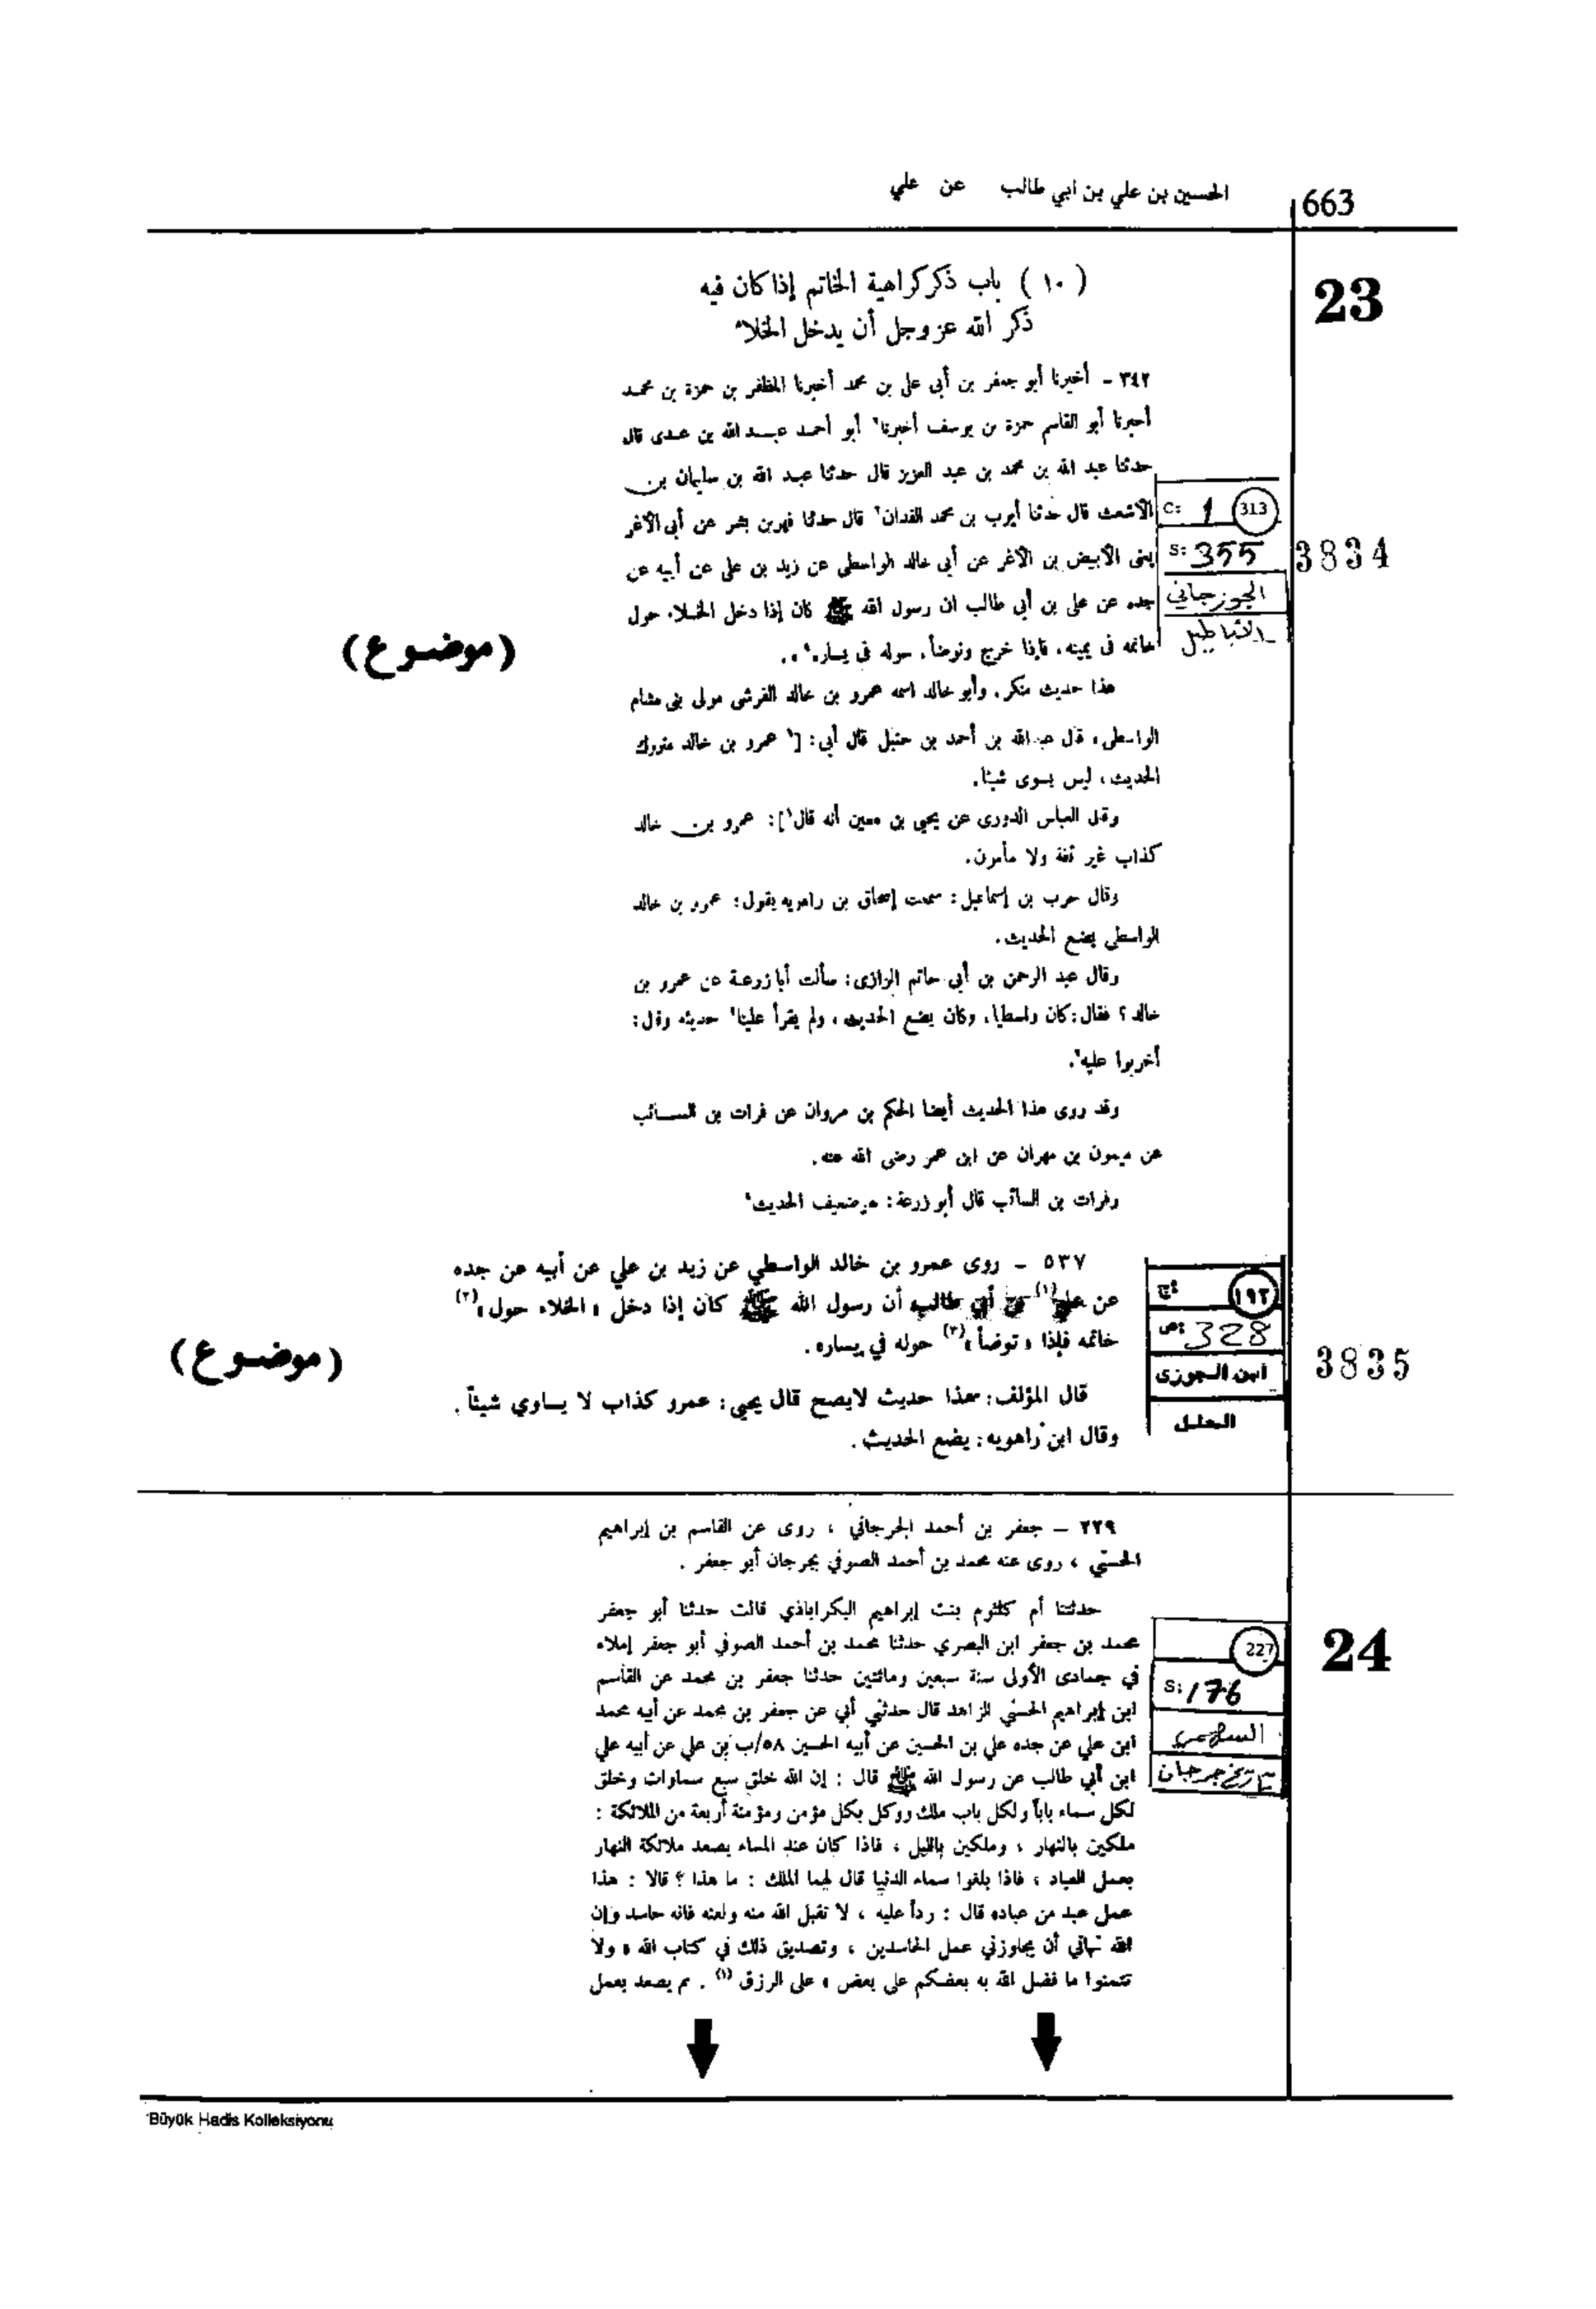 الحسين بن علي بن ابي طالب عن علي
663
23
( ١٠ ) باب ذكر كراهية الخاتم إذا كان فيه
ذكر الله عز وجل أن يدخل الخلاء
٣٤٢ - أخبرنا أبو جعفر بن أبى على بن محمد أخبرنا المظفر بن حمزة بن محمد
أخبرنا أبو القاسم حمزة بن يوسف أخبرنا' أبو أحمد عبد الله بن عدى قال
حدثنا عبد الله بن محمد بن عبد العزيز قال حدثنا عبد الله بن سليمان بن
الأشعث قال حدثنا أيوب بن محمد قال حدثنا فهر بن بشر عن أبى الأغر
يعنى الأبيض بن الأغر عن أبى خالد الواسطى عن زيد بن على عن أبيه عن
جده عن على بن أبى طالب ان رسول الله ﷺ كان إذا دخل الخلاء حول
خاتمه فى يمينه، فإذا خرج وتوضأ، حوله فى يساره.
C: 1 313
S: 355
الجوزجاني
الأباطيل
3834
(موضوع)
هذا حديث منكر، وأبو خالد اسمه عمرو بن خالد القرشى مولى بنى هشام
الواسطى، قال عبد الله بن أحمد بن حنبل قال أبى: [' عمرو بن خالد متروك
الحديث، ليس يسوى شيئا.
وقال العباس الدورى عن يحيى بن معين أنه قال']: عمرو بن خالد
كذاب غير ثقة ولا مأمون.
وقال حرب بن إسماعيل: سمعت إسحاق بن راهويه يقول: عمرو بن خالد
الواسطى يضع الحديث.
وقال عبد الرحمن بن أبى حاتم الرازى: سألت أبا زرعة عن عمرو بن
خالد؟ فقال: كان واسطيا، وكان يضع الحديث، ولم يقرأ علينا' حديثه وقال:
أضربوا عليه'.
وقد روى هذا الحديث أيضا الحكم بن مروان عن فرات بن السائب
عن ميمون بن مهران عن ابن عمر رضى الله عنه.
وفرات بن السائب قال أبو زرعة: هو ضعيف الحديث'
٥٣٧ - روى عمرو بن خالد الواسطي عن زيد بن علي عن أبيه عن جده
عن علي(١) بن أبي طالب أن رسول الله ﷺ كان إذا دخل « الخلاء حول »(٢)
خاتمه فإذا « توضأ »(٣) حوله في يساره.
ج: ١٩٢
ص: 328
ابن الجوزى
العلل
3835
(موضوع)
قال المؤلف: هذا حديث لايصح قال يحيى: عمرو كذاب لا يساوي شيئاً.
وقال ابن راهويه: يضع الحديث.
٢٢٩ – جعفر بن أحمد الجرجاني ، روى عن القاسم بن إبراهيم
الحسني ، روى عنه محمد بن أحمد الصوفي بجرجان أبو جعفر .
حدثتنا أم كلثوم بنت إبراهيم البكراباذي قالت حدثنا أبو جعفر
محمد بن جعفر ابن البصري حدثنا محمد بن أحمد الصوفي أبو جعفر إملاء
في جمادى الأولى سنة سبعين ومائتين حدثنا جعفر بن محمد عن القاسم
ابن إبراهيم الحسني الزاهد قال حدثني أبي عن جعفر بن محمد عن أبيه محمد
ابن علي عن جده علي بن الحسين عن أبيه الحسين ٥٨/ب بن علي عن أبيه علي
ابن أبي طالب عن رسول الله ﷺ قال : إن الله خلق سبع سماوات وخلق
لكل سماء باباً ولكل باب ملك ووكل بكل مؤمن ومؤمنة أربعة من الملائكة :
ملكين بالنهار ، وملكين بالليل ، فاذا كان عند المساء يصعد ملائكة النهار
بعمل العباد ، فاذا بلغوا سماء الدنيا قال لهما الملك : ما هذا ؟ قالا : هذا
عمل عبد من عباده قال : رداً عليه ، لا تقبل الله منه ولعنه فانه حاسد وإن
الله نهاني أن يجاوزني عمل الحاسدين ، وتصديق ذلك في كتاب الله « ولا
تتمنوا ما فضل الله به بعضكم على بعض » على الرزق (١) . ثم يصعد بعمل
24
227
S: 176
السهمي
تاريخ جرجان
Büyük Hadis Kolleksiyonu